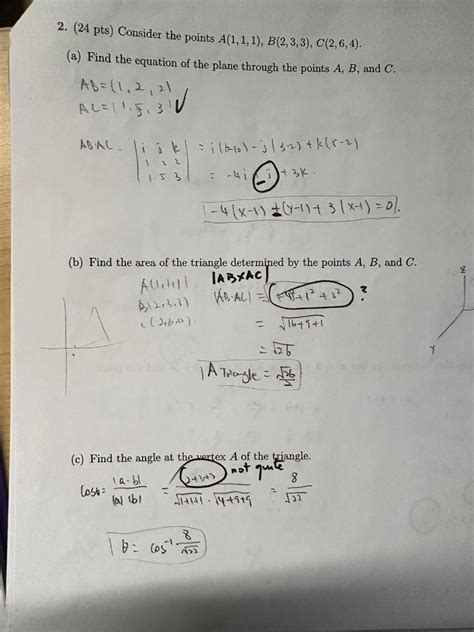 2. (24 pts) Consider the points A(1, 1, 1), B(2, 3, 3), C(2, 6, 4).
(a) Find the equation of the plane through the points A, B, and C.
AB = (1, 2, 2)
AC = (1, 5, 3) ✓
AB·AC = | i j k | = i(6-10) - j(3-2) + k(5-2)
1 2 2
1 5 3 = -4i - j + 3k.
-4(x-1) ± (y-1) + 3(x-1) = 0
(b) Find the area of the triangle determined by the points A, B, and C.
|AB×AC|
A(1,1,1)
B(2,3,3)
C(2,6,4).
|AB·AC| = ?
= √16+9+1
= √26
A Triangle = √26/2
z
Y
(c) Find the angle at the vertex A of the triangle.
not quite
cosθ = |a·b| / |a| |b| = 2+3+3 / √1+1+1 · √4+9+9 = 8 / √22
θ = cos⁻¹ 8/√22